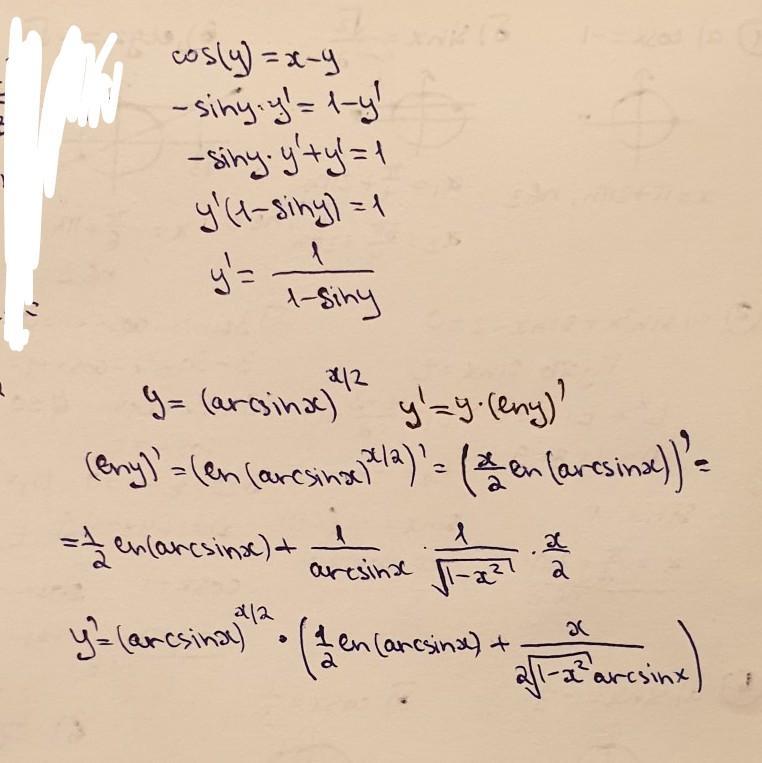 cos(y) = x-y
-siny·y' = 1-y'
-siny·y'+y' = 1
y'(1-siny) = 1
y' = 1/(1-siny)
y = (arcsinx)^(x/2) y' = y·(lny)'
(lny)' = (ln(arcsinx)^(x/2))' = (x/2 ln(arcsinx))' =
= 1/2 ln(arcsinx) + 1/arcsinx · 1/√(1-x²) · x/2
y' = (arcsinx)^(x/2) · (1/2 ln(arcsinx) + x/(2√(1-x²) arcsinx))